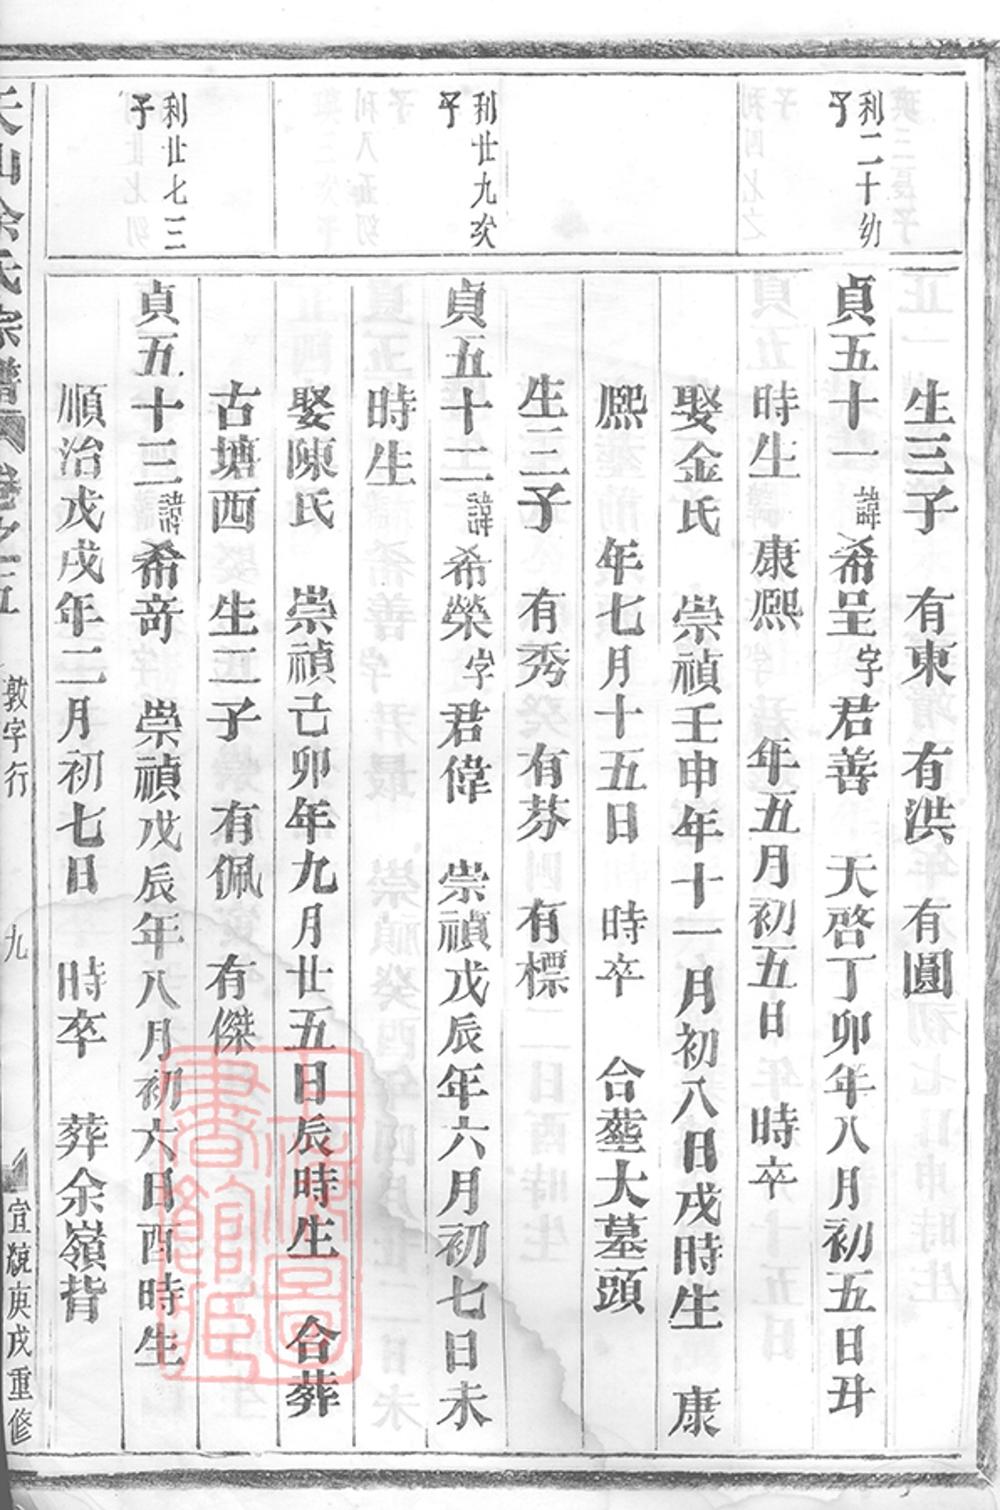 利二十幼
子
利廿九次
子
利廿七三
子
生三子　有東　有洪　有圓
貞五十一諱希呈字君善　天啓丁卯年八月初五日丑
時生　康熙　年五月初五日　時卒
娶金氏　崇禎壬申年十一月初八日戌時生　康
熙　年七月十五日　時卒　合塟大墓頭
生三子　有秀　有芬　有標
貞五十二諱希榮字君偉　崇禎戊辰年六月初七日未
時生
娶陳氏　崇禎己卯年九月廿五日辰時生　合葬
古塘西　生二子　有佩　有傑
貞五十三諱希竒　崇禎戊辰年八月初六日酉時生
順治戊戌年二月初七日　時卒　葬余嶺背
余氏宗譜　卷之五　敦字行　九　宣統庚戌重修
上海圖書館藏